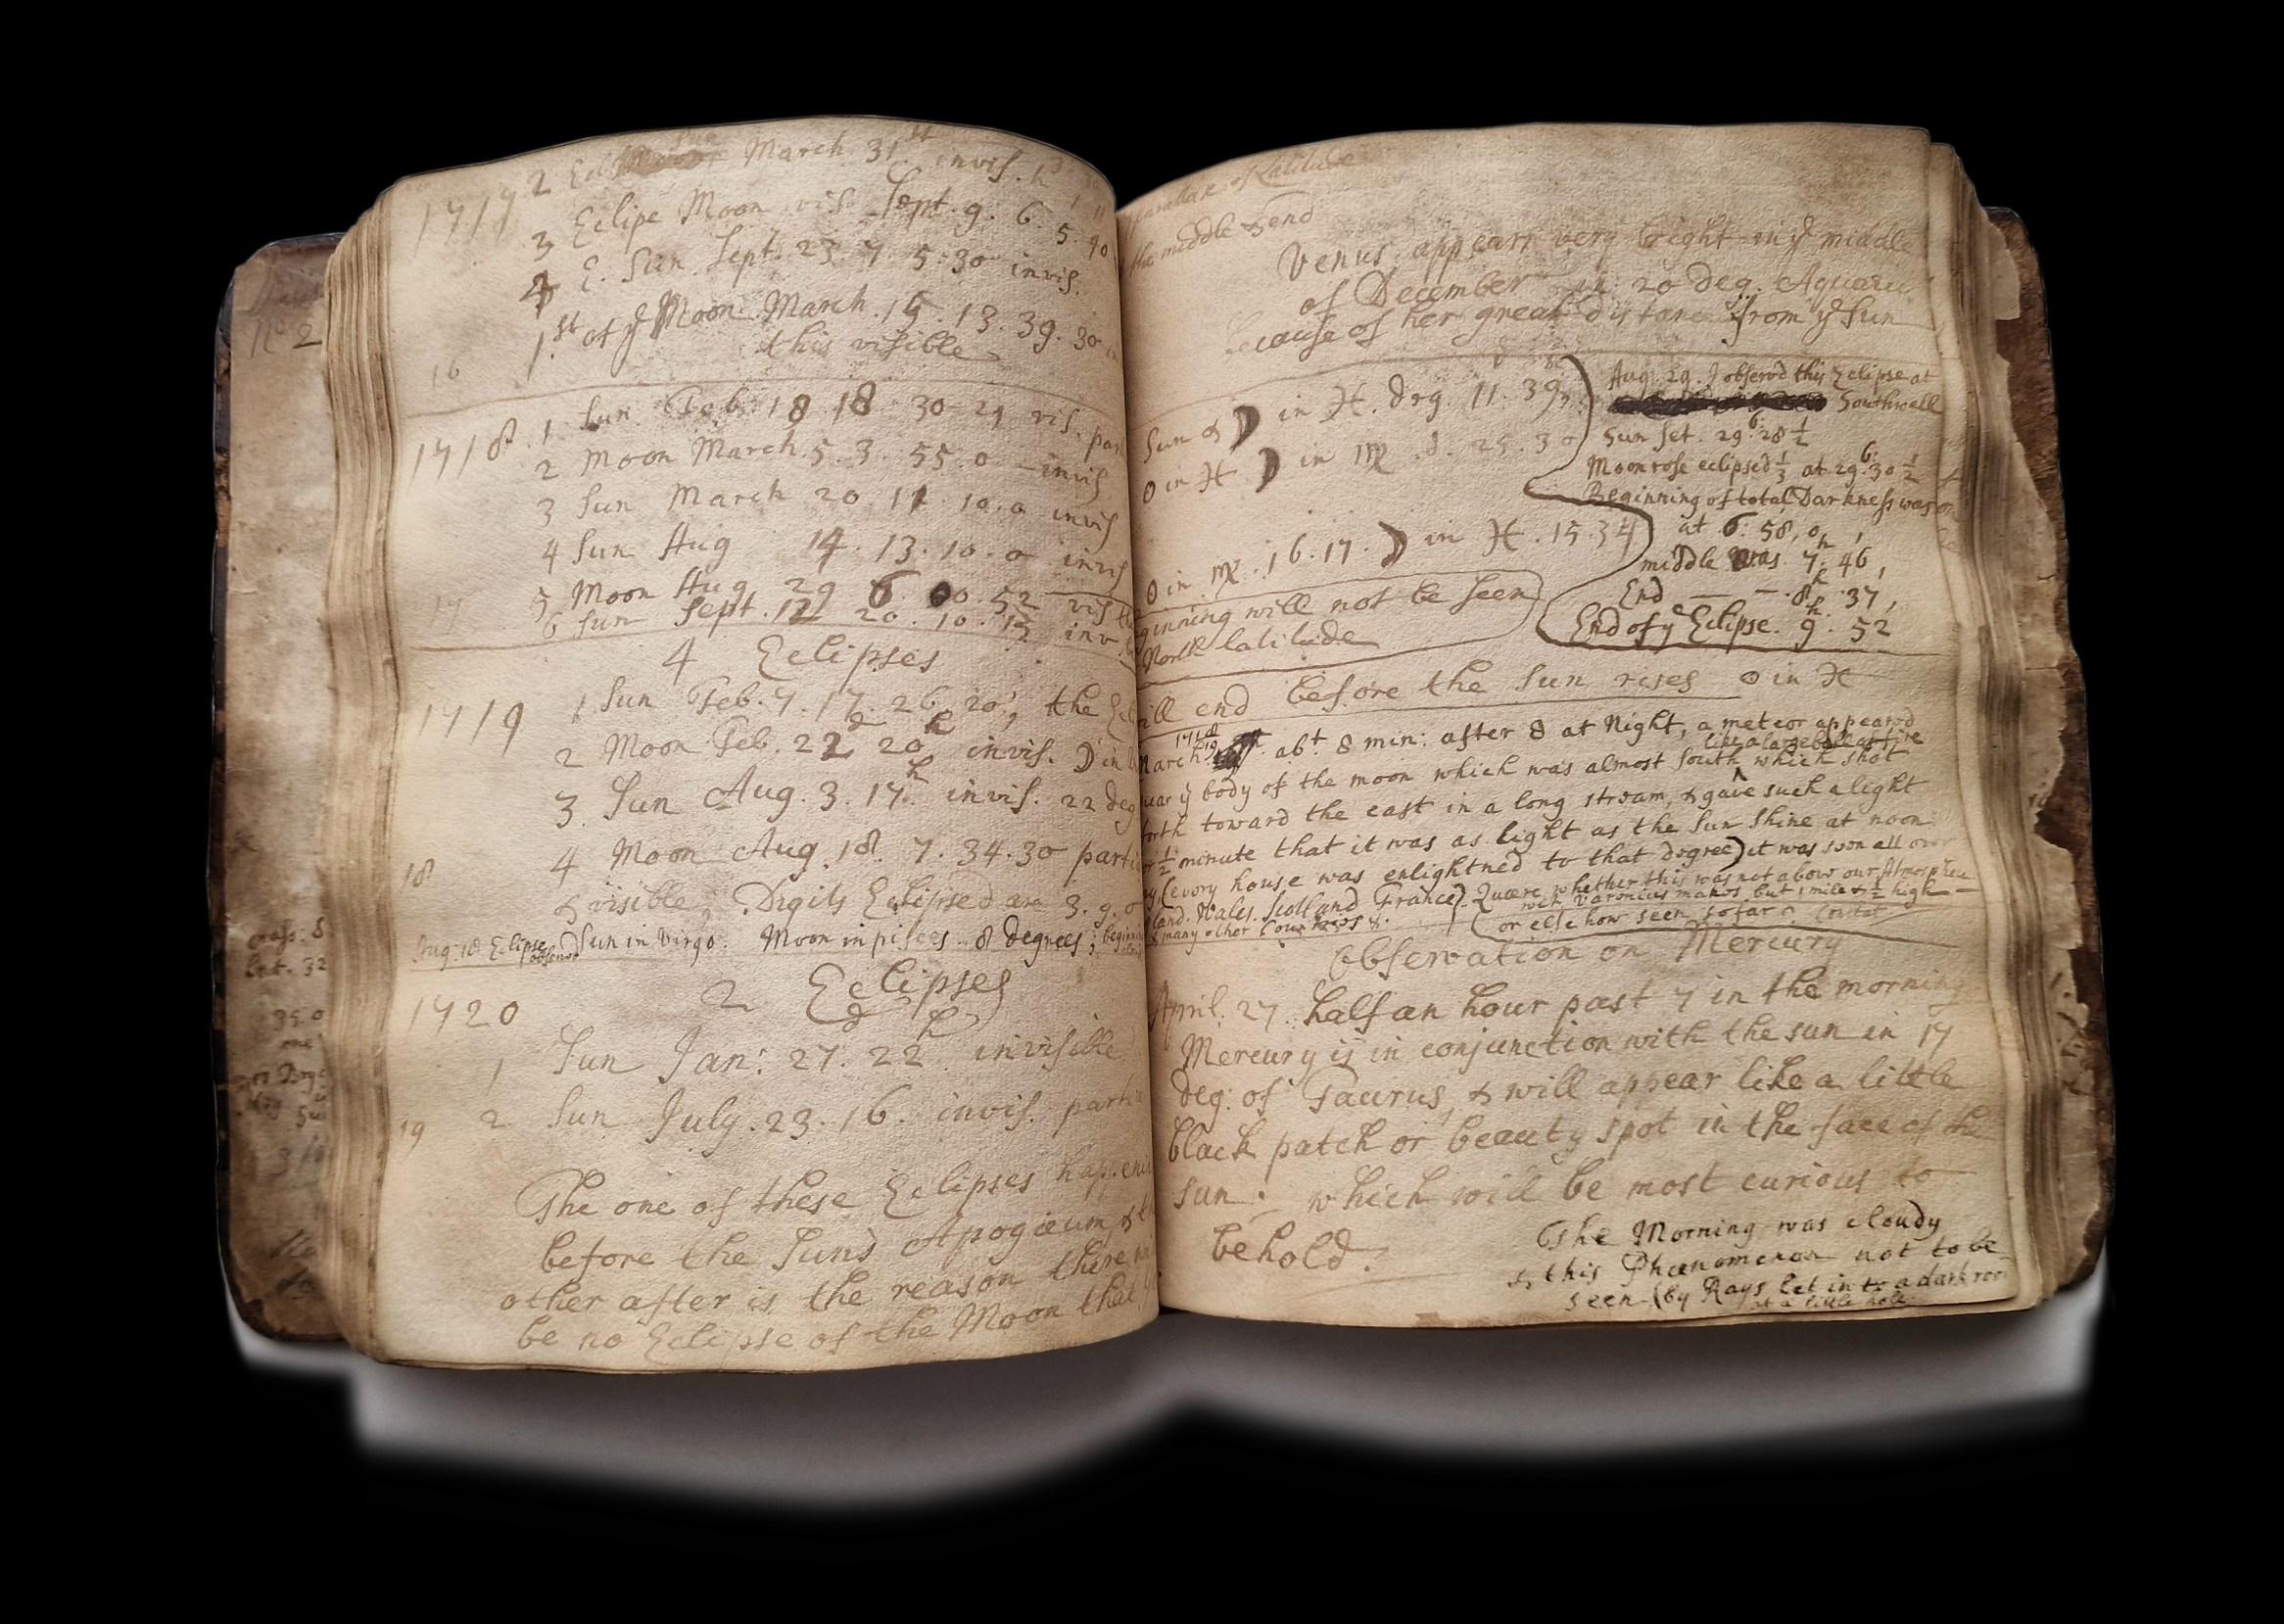 N° 2
1717 2 Ecl Sun March 31st invis. h
3 Eclipe Moon vis Sept. 9. 6. 5. 40
4 E. Sun Sept. 23. 7. 5. 30 invis.
1st of ye Moon March. 15. 13. 39. 30
16 this visible
1718 1 Sun Feb. 18 18 30 29 vis. par
2 Moon March. 5. 3. 55. 0 invis
3 Sun March 20 11 10. 0 invis
4 Sun Aug 14. 13. 10. 0 invis
17 5 Moon Aug 29 6. 00. 52 vis
6 Sun Sept. 12 20. 10. 13 inv
4 Eclipses
1719 1 Sun Feb. 7. 17. 26. 20, the Ecl
2 Moon Feb. 22d 20h invis. ☽ in
3 Sun Aug. 3. 17.h invis. 22 deg
4 Moon Aug. 18. 7. 34. 30 parti
18 & visible, Digits Eclipsed are 3. 9. 0
Aug: 18 Eclipse observd Sun in Virgo. Moon in pisces. 8 degrees; beginn
1720 2 Eclipses
1 Sun Jan: 27.d 22h invisible
19 2 Sun July. 23. 16. invis. partia
The one of these Eclipses happenin
before the Suns Apogæum, &
other after is the reason there
be no Eclipse of the Moon that
parallax of Latitude
the middle & end
Venus appears very bright in ye middle
of December in 20 deg. Aquari
because of her great distance from ye Sun
Sun & ☽ in ♓. deg. 11. 39
☉ in ♓ ☽ in ♍ . 25. 30
☉ in ♍. 16. 17. ☽ in ♓. 15. 34
ginning will not be seen
North latitude
Aug. 29. I observd this Eclipse at
Southwell
Sun set. 29. 6. 28 ½
Moon rose eclipsed ⅓ at 29. 6. 30 ½
Beginning of total Darkness was
at 6. 58, 0
middle was 7.h 46,
End — — . 8h. 37,
End of ye Eclipse. 9.h 52
ill end before the Sun rises ☉ in ♓
March 1718/19 abt. 8 min: after 8 at Night, a meteor appeared
like a large ball of fire
near ye body of the moon which was almost South which shot
forth toward the east in a long stream, & gave such a light
for ½ minute that it was as light as the Sun shine at noon
(every house was enlightned to that degree) it was soon all over
land. Wales. Scotland France). Quære whether this was not above our Atmosphere
wch Varenius makes but 1 mile & ½ high
& many other Countries &. (or else how seen so far
Observation on Mercury
April. 27. half an hour past 7 in the morning
Mercury is in conjunction with the sun in 17
deg: of Taurus, & will appear like a little
black patch or beauty spot in the face of the
sun: which will be most curious to
behold.
The Morning was cloudy
& this Phænomenon not to be
seen (by Rays let in to a dark room
at a little hole